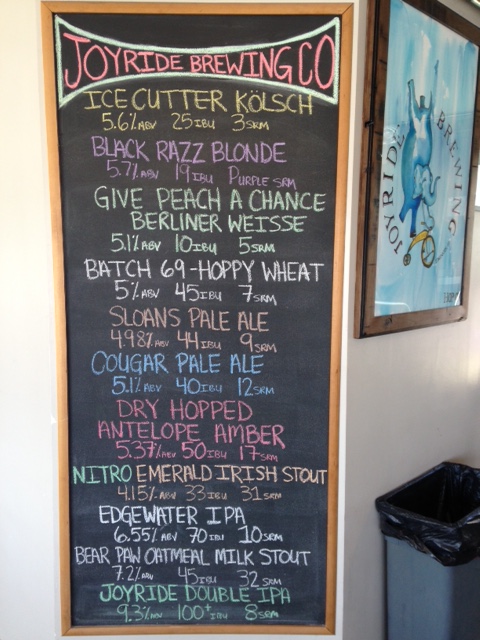 JOYRIDE BREWING CO
ICE CUTTER KÖLSCH
5.6% ABV 25 IBU 3 SRM
BLACK RAZZ BLONDE
5.7% ABV 19 IBU PURPLE SRM
GIVE PEACH A CHANCE
BERLINER WEISSE
5.1% ABV 10 IBU 5 SRM
BATCH 69-HOPPY WHEAT
5% ABV 45 IBU 7 SRM
SLOANS PALE ALE
4.98% ABV 44 IBU 9 SRM
COUGAR PALE ALE
5.1% ABV 40 IBU 12 SRM
DRY HOPPED
ANTELOPE AMBER
5.37% ABV 50 IBU 17 SRM
NITRO EMERALD IRISH STOUT
4.15% ABV 33 IBU 31 SRM
EDGEWATER IPA
6.55% ABV 70 IBU 10 SRM
BEAR PAW OATMEAL MILK STOUT
7.2% ABV 45 IBU 32 SRM
JOYRIDE DOUBLE IPA
9.3% ABV 100+ IBU 8 SRM
JOYRIDE BREWING